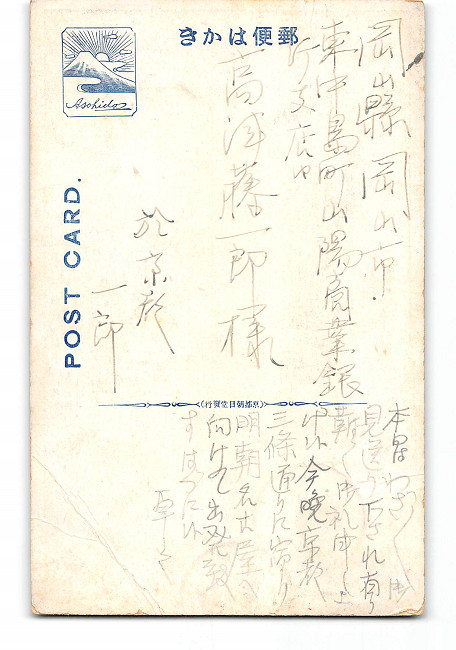 郵便はかき
Asahido
POST CARD.
岡山縣岡山市
東中島町山陽商業銀
行支店内
藤一郎様
於京都
一郎
(京都朝日堂發行)
本日はわざ〱御
見送り下され有り
難く御礼申し上
今晩京都
三條通りに宿り
明朝名古屋へ
向けて出発
草々